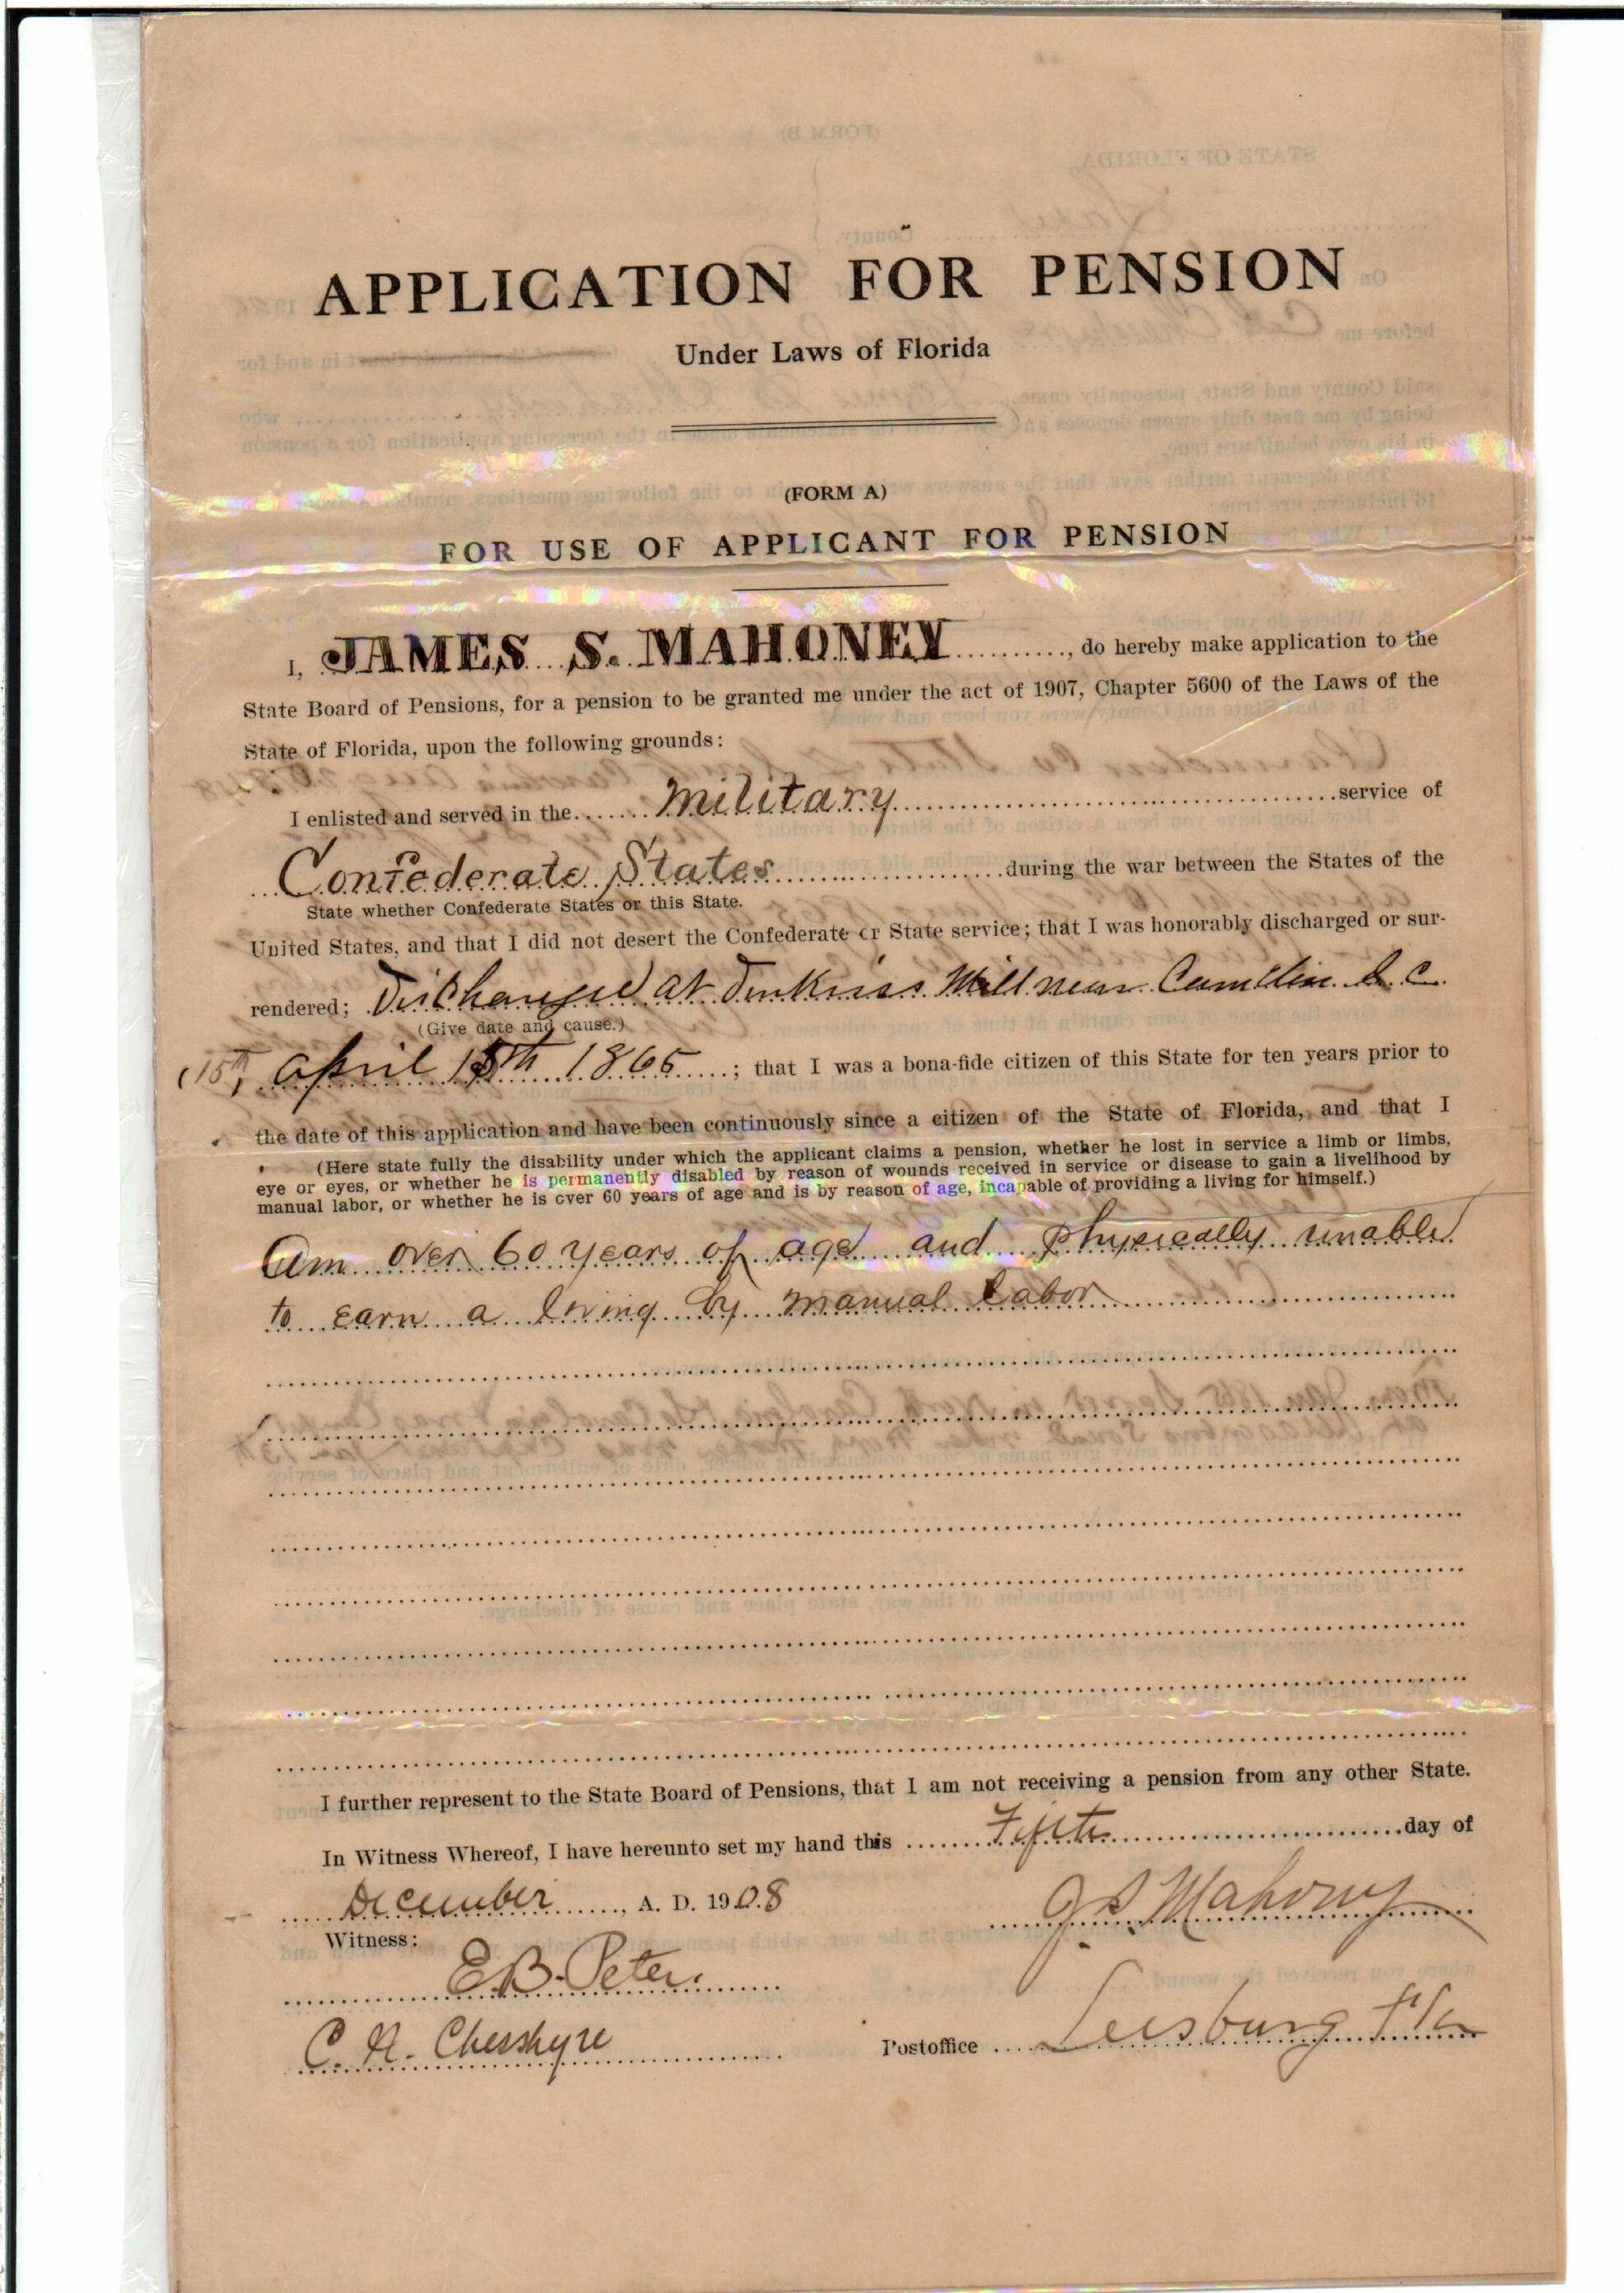 APPLICATION FOR PENSION
Under Laws of Florida
(FORM A)
FOR USE OF APPLICANT FOR PENSION
I, JAMES S. MAHONEY, do hereby make application to the
State Board of Pensions, for a pension to be granted me under the act of 1907, Chapter 5600 of the Laws of the
State of Florida, upon the following grounds:
I enlisted and served in the military service of
Confederate States during the war between the States of the
State whether Confederate States or this State.
United States, and that I did not desert the Confederate or State service; that I was honorably discharged or sur-
rendered; Discharged at Mill near Camden S. C.
(Give date and cause.)
(15th, April 15th 1865; that I was a bona-fide citizen of this State for ten years prior to
the date of this application and have been continuously since a citizen of the State of Florida, and that I
(Here state fully the disability under which the applicant claims a pension, whether he lost in service a limb or limbs,
eye or eyes, or whether he is permanently disabled by reason of wounds received in service or disease to gain a livelihood by
manual labor, or whether he is over 60 years of age and is by reason of age, incapable of providing a living for himself.)
Am over 60 years of age and physically unable
to earn a living by manual labor
I further represent to the State Board of Pensions, that I am not receiving a pension from any other State.
In Witness Whereof, I have hereunto set my hand this Fifth day of
December, A. D. 1908
J S Mahoney
Witness:
E. B. Peter
C. H. Chesshyre
Postoffice Leesburg Fla